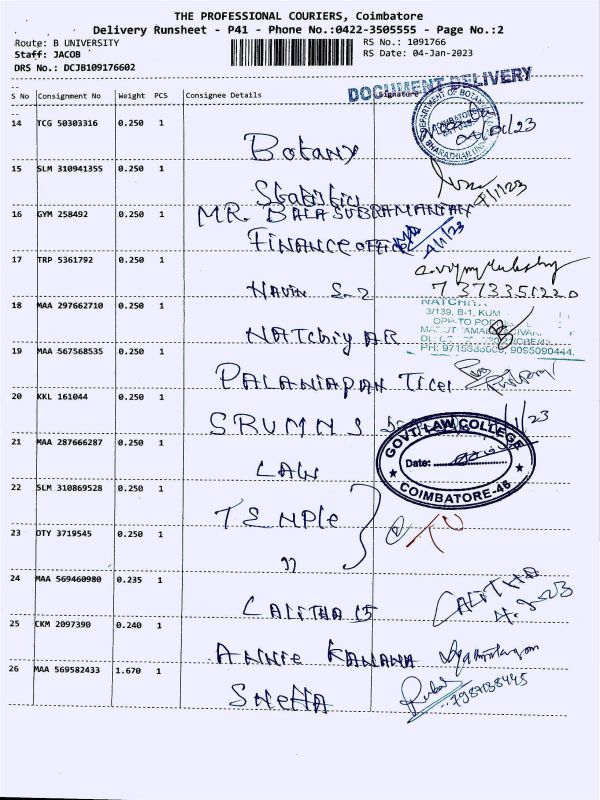 THE PROFESSIONAL COURIERS, Coimbatore
Delivery Runsheet - P41 - Phone No.:0422-3505555 - Page No.:2
Route: B UNIVERSITY
RS No.: 1091766
Staff: JACOB
RS Date: 04-Jan-2023
DRS No.: DCJB109176602
DOCUMENT DELIVERY
S No Consignment No Weight PCS Consignee Details Signature
14 TCG 50303316 0.250 1
Botany
DEPARTMENT OF BOTANY
04/01/23
15 SLM 310941355 0.250 1
Statistics
4/1/23
16 GYM 258492 0.250 1
MR. BALASUBRAMANIAN
FINANCE OFFICE
4/1/23
17 TRP 5361792 0.250 1
NAVIN S-2
7373351220
18 MAA 297662710 0.250 1
NATCHIYAR
3/139, B-1, KUM
9095090444.
19 MAA 567568535 0.250 1
PALANIAPAN Ticel
20 KKL 161044 0.250 1
SBUMNS
21 MAA 287666287 0.250 1
LAW
GOVT. LAW COLLEGE
Date:
COIMBATORE-46
22 SLM 310869528 0.250 1
TEMPLE
23 OTY 3719545 0.250 1
"
24 MAA 569460980 0.235 1
LALITHA 15
LALITHA
4.1.23
25 CKM 2097390 0.240 1
ANNIE KANANA
26 MAA 569582433 1.670 1
SNEHA
7987138445